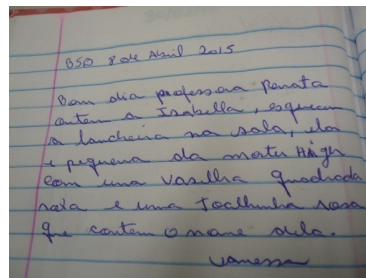 BSD 8 de Abril 2015
Bom dia professora Renata
ontem a Isabella, esqueceu
a lancheira na sala, ela
é pequena da monter High
com uma vasilha quadrada
roxa e uma Toalhinha rosa
que contem o nome dela.
Vanessa